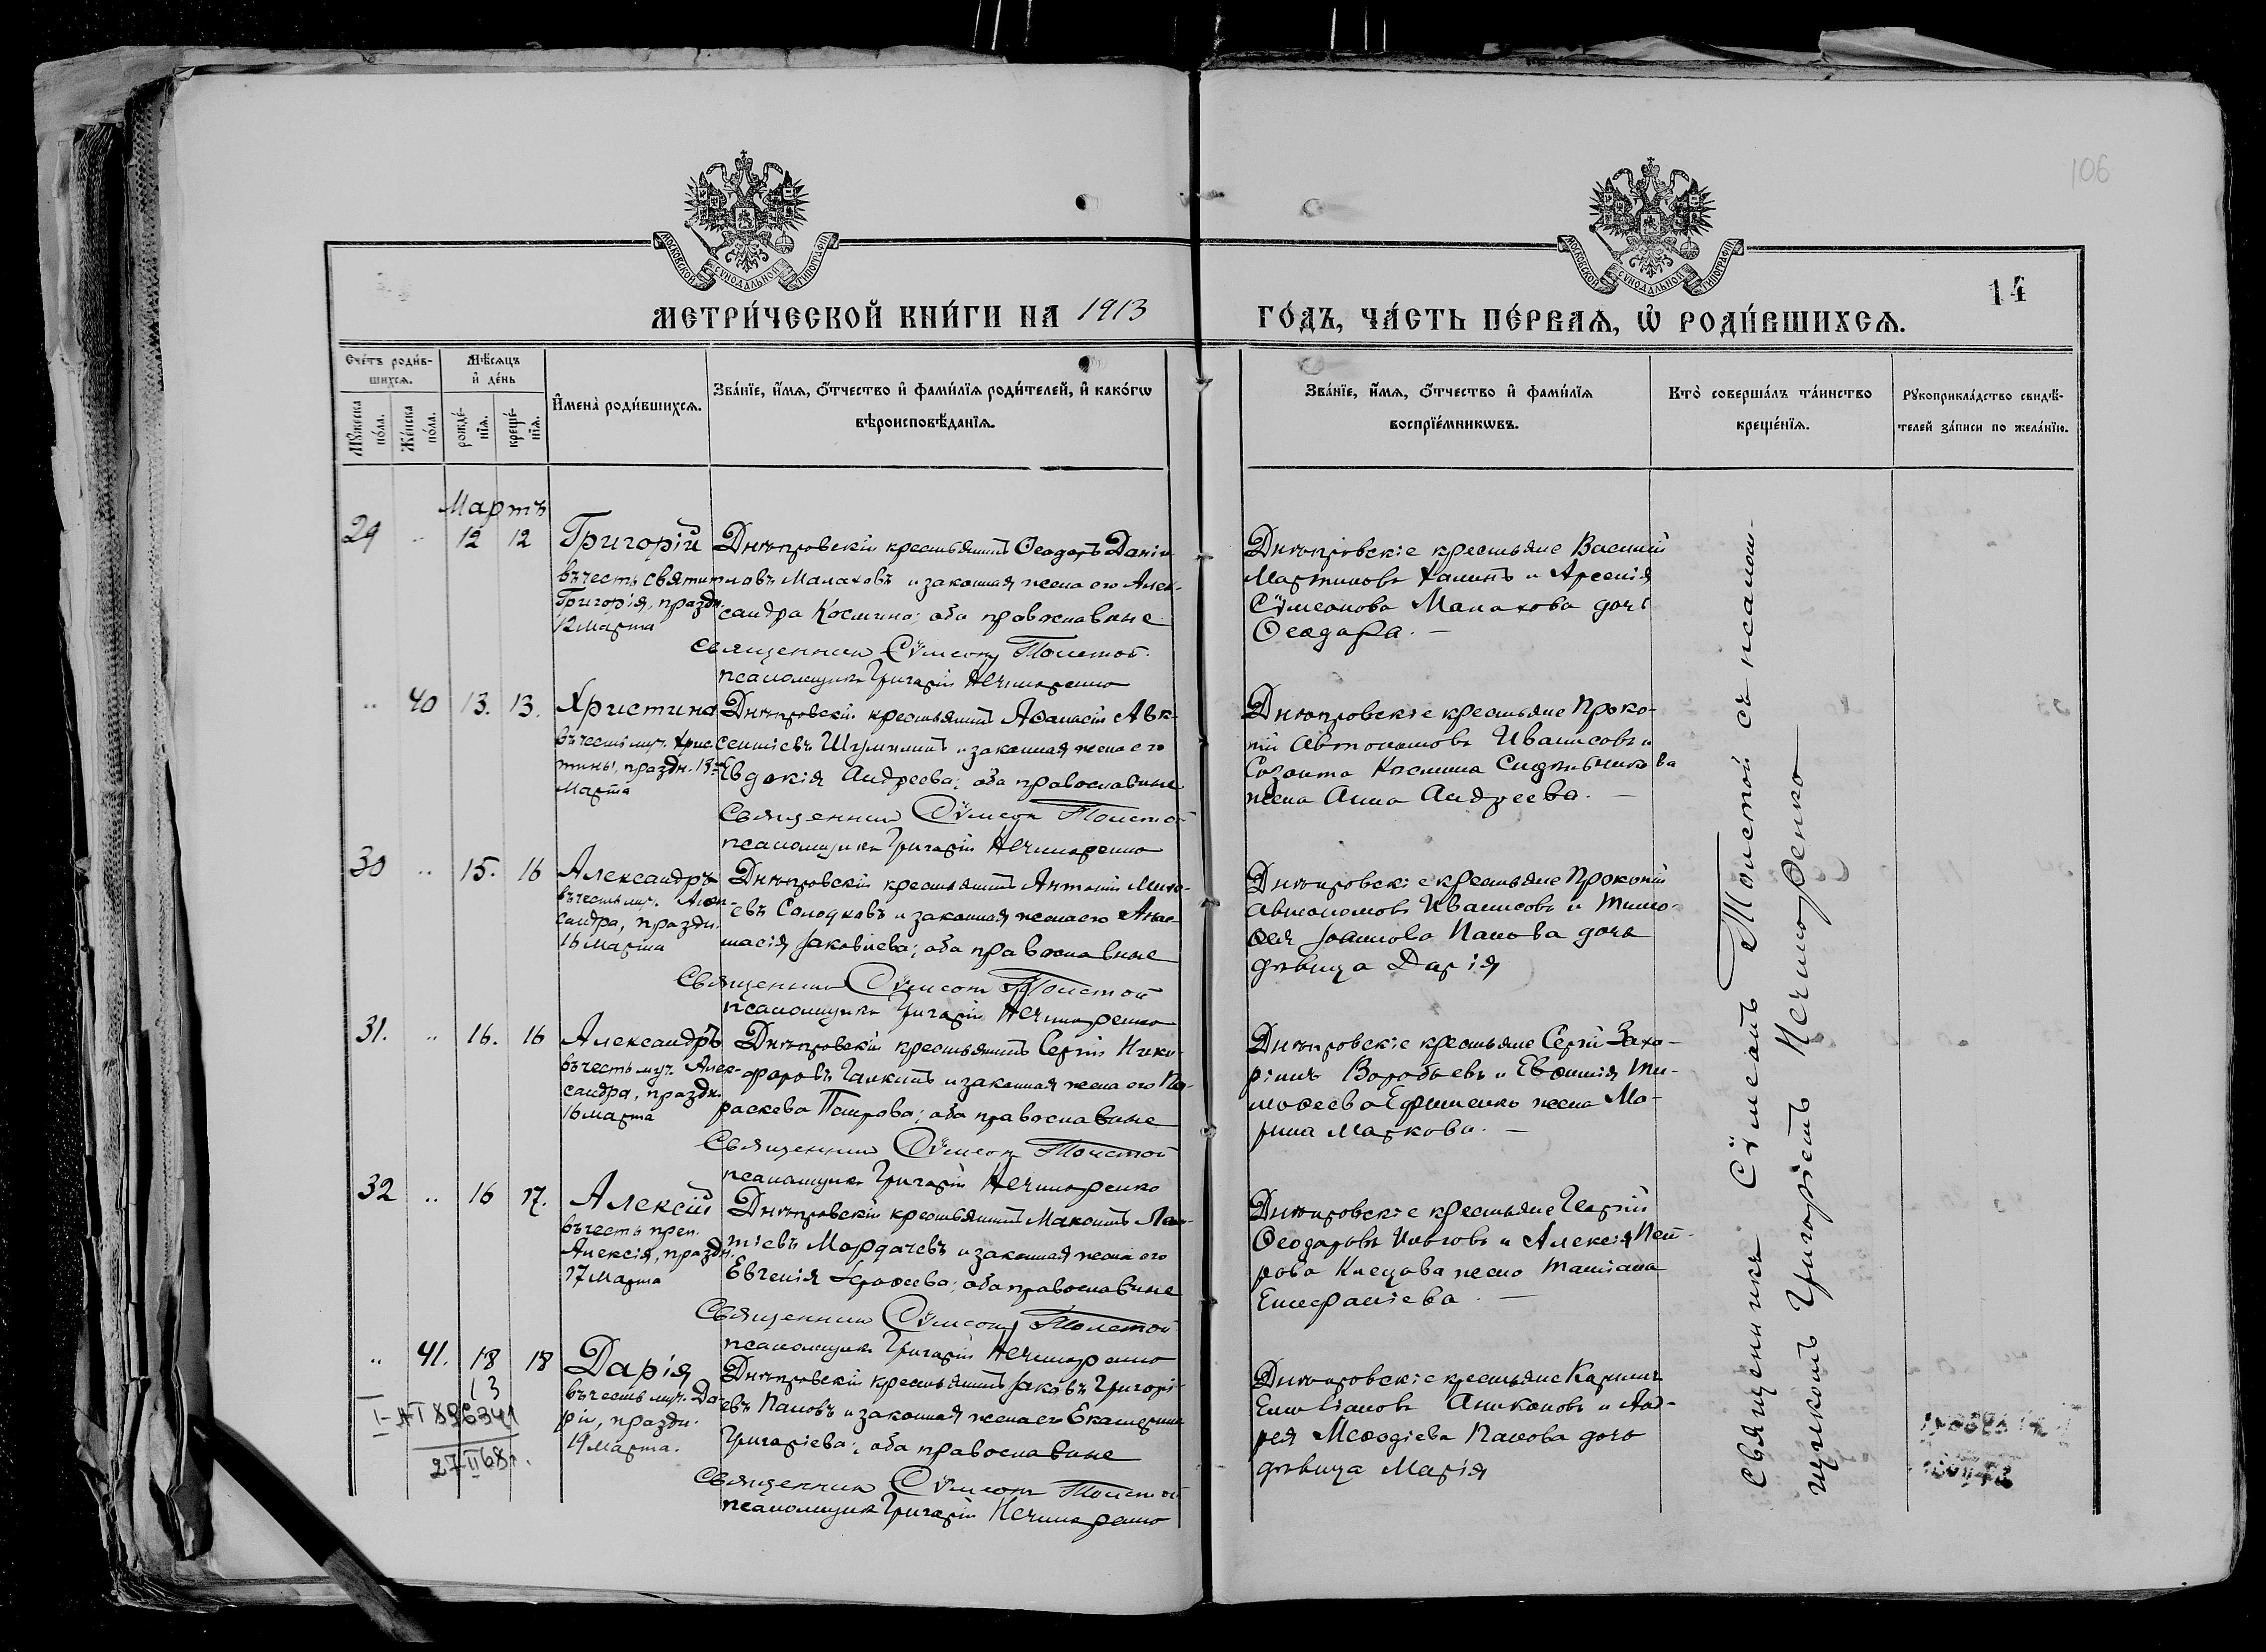 106
МОСКОВСКОЙ СѴНОДАЛЬНОЙ ТИПОГРАФІИ
МОСКОВСКОЙ СѴНОДАЛЬНОЙ ТИПОГРАФІИ
14
МЕТРИ́ЧЕСКОЙ КНИ́ГИ НА 1913
ГО́ДЪ, ЧА́СТЬ ПЕ́РВАѦ, Ѡ҆ РОДИ́ВШИХСѦ.
Сче́тъ роди́в-
шихсѧ.
Мѣ́сѧцъ
и҆ де́нь
Мꙋ́жеска
по́ла.
Же́нска
по́ла.
рожде́-
нїѧ.
креще́-
нїѧ.
И҆мена̀ роди́вшихсѧ.
Зва́нїе, и҆́мѧ, ѻ҆́тчество и҆ фами́лїѧ роди́телей, и҆ како́гѡ
вѣроисповѣ́данїѧ.
Зва́нїе, и҆́мѧ, ѻ҆́тчество и҆ фами́лїѧ
воспрїе́мникѡвъ.
Кто̀ соверша́лъ та́инство
креще́нїѧ.
Рꙋкоприкла́дство свидѣ́-
телей за́писи по жела́нїю.
Мартъ
29 " 12 12
Григорій
въ честь святит.
Григорія, праздн.
12 Марта
Днѣпровскій крестьянинъ Ѳеодоръ Даніи-
ловъ Малаховъ и законная жена его Алек-
сандра Космина; оба православные
Священник Сѵмеон Толстой
псаломщикъ Григорій Нечипоренко
Днѣпровскіе крестьяне Василій
Мартиновъ Халинъ и Арсенія
Сѵмеонова Малахова дочь
Ѳеодора. —
" 40 13. 13.
Христина
въ честь муч. Хрис-
тины, праздн. 13го
Марта
Днѣпровскій крестьянинъ Аѳанасій Авк-
сентіевъ и законная жена его
Евдокія Андреева; оба православные
Священник Сѵмеон Толстой
псаломщикъ Григорій Нечипоренко
Днѣпровскіе крестьяне Проко-
пій Автономовъ Иванисовъ и
Созонта Космина Сидельникова
жена Анна Андреева. —
30 " 15. 16
Александръ
въ честь муч. Алек-
сандра, праздн.
16 Марта
Днѣпровскій крестьянинъ Антоній Михе-
евъ Солодковъ и законная жена его Анас-
тасія Іаковлева; оба православные
Священник Сѵмеон Толстой
псаломщикъ Григорій Нечипоренко
Днѣпровскіе крестьяне Прокопій
Автономовъ Иванисовъ и Тимо-
ѳея Іоаннова Панова дочь
дѣвица Дарія
31. " 16. 16
Александръ
въ честь муч. Алек-
сандра, праздн.
16 Марта
Днѣпровскій крестьянинъ Сергій Ники-
форовъ Галкинъ и законная жена его Па-
раскева Петрова; оба православные
Священник Сѵмеон Толстой
псаломщикъ Григорій Нечипоренко
Днѣпровскіе крестьяне Сергій Заха-
ріинъ Воробьевъ и Евѳимія Ти-
моѳеева Ефименко жена Ма-
рина Маркова. —
32 " 16 17.
Алексій
въ честь преп.
Алексія, праздн.
17 Марта
Днѣпровскій крестьянинъ Ле-
тіевъ Мордачевъ и законная жена его
Евгенія Іероѳеева; оба православные
Священник Сѵмеон Толстой
псаломщикъ Григорій Нечипоренко
Днѣпровскіе крестьяне Георгій
Ѳеодоровъ и Алексія Пет-
рова Клецова жена Татіана
. —
" 41. 18 18
13
Дарія
въ честь муч. Да-
ріи, праздн.
19 Марта.
Днѣпровскій крестьянинъ Іаковъ Григорі-
евъ Пановъ и законная жена его Екатерина
Григоріева; оба православные
Священник Сѵмеон Толстой
псаломщикъ Григорій Нечипоренко
Днѣпровскіе крестьяне Карпъ
Емиліановъ Аникановъ и Анд-
рея Меѳодіева Панова дочь
дѣвица Марія
I-АТ 896341
27 II 68г.
Священникъ Сѵмеонъ Толстой съ псалом-
щикомъ Григоріемъ Нечипоренко